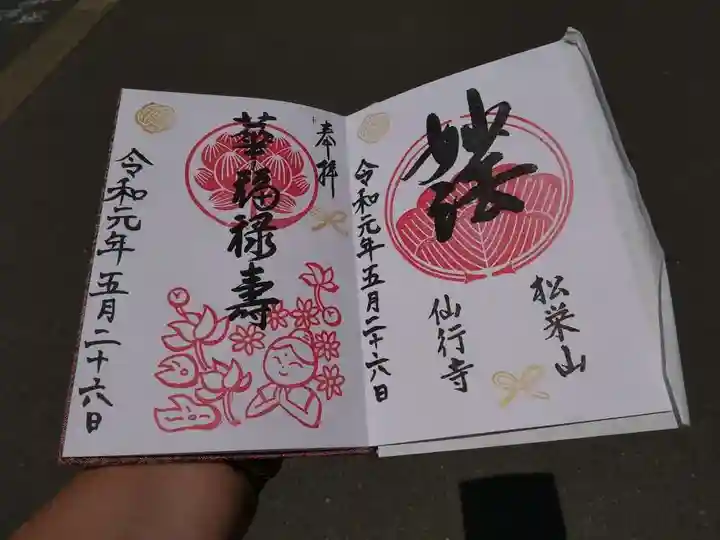 妙法
松栄山
仙行寺
令和元年五月二十六日
奉拝
華福禄寿
令和元年五月二十六日